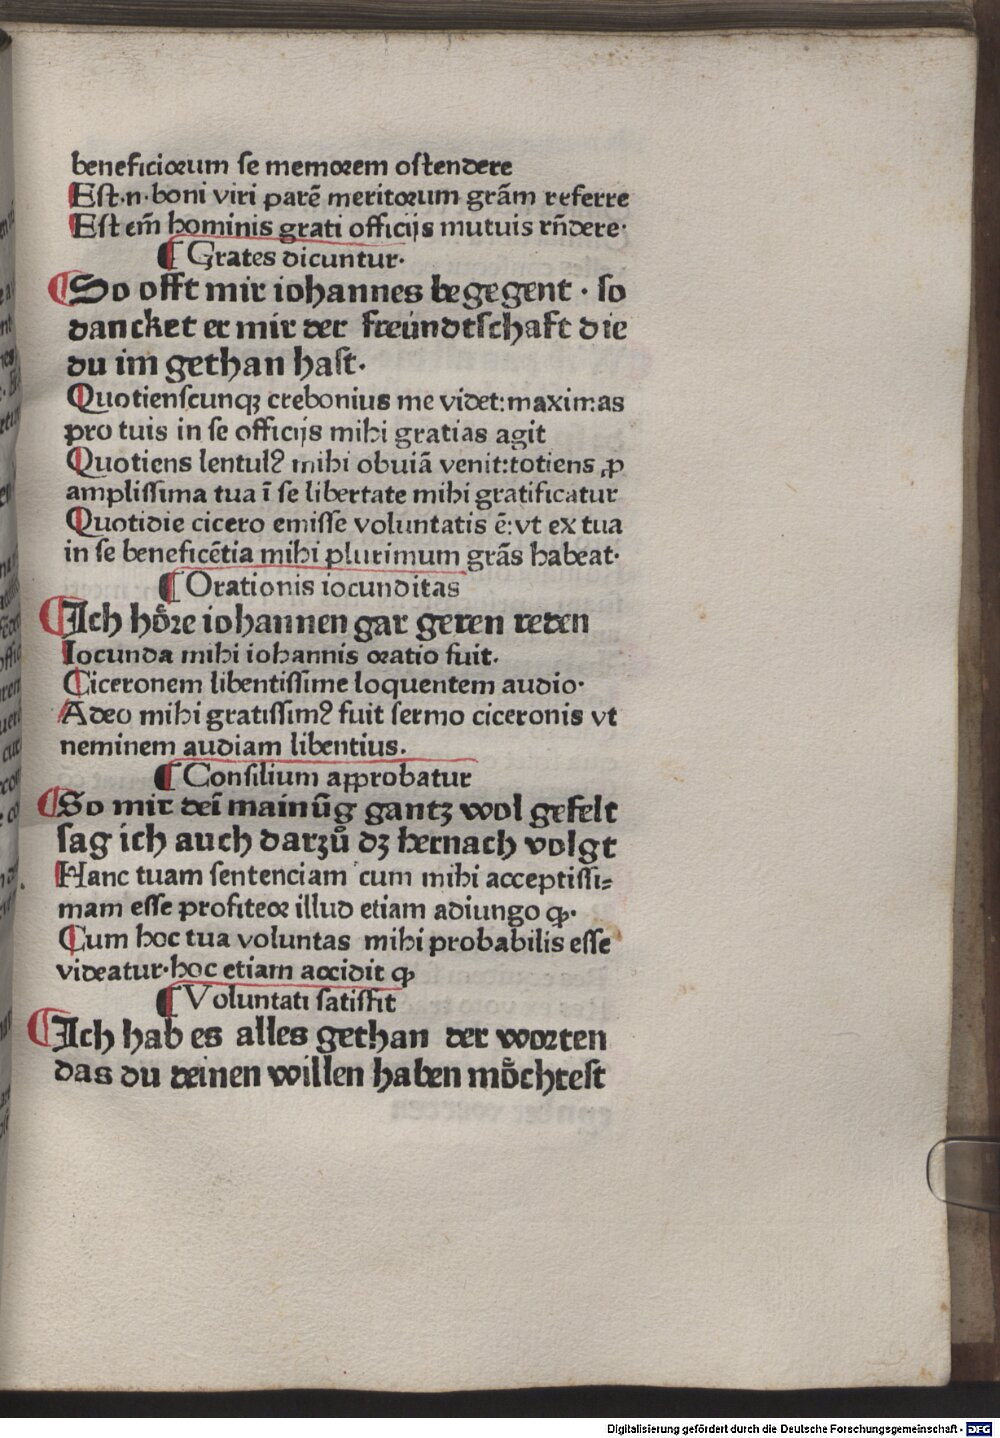 beneficiorum se memorem ostendere
Est.n.boni viri parē meritorum grãm referre
Est em̃ hominis grati officijs mutuis rñdere.
¶ Grates dicuntur.
So offt mir iohannes begegent · so
dancket er mir der freündtschaft die
du im gethan hast.
Quotienscunqꝫ crebonius me videt:maximas
pro tuis in se officijs mihi gratias agit
Quotiens lentulꝰ mihi obuiã venit:totiens ,p
amplissima tua ī se libertate mihi gratificatur
Quotidie cicero emisse voluntatis ē:vt ex tua
in se beneficētia mihi plurimum grãs habeat.
¶ Orationis iocunditas
Ich hoͤre iohannen gar geren reden
Iocunda mihi iohannis oratio fuit.
Ciceronem libentissime loquentem audio.
Adeo mihi gratissimꝰ fuit sermo ciceronis vt
neminem audiam libentius.
¶ Consilium approbatur
So mir deī mainūg gantz wol gefelt
sag ich auch darzuͦ dz hernach volgt
Hanc tuam sentenciam cum mihi acceptissi=
mam esse profiteor illud etiam adiungo ꝙ.
Cum hoc tua voluntas mihi probabilis esse
videatur.hoc etiam accidit ꝙ
¶ Voluntati satisfit
Ich hab es alles gethan der worten
das du deinen willen haben moͤchtest
Digitalisierung gefördert durch die Deutsche Forschungsgemeinschaft - DFG